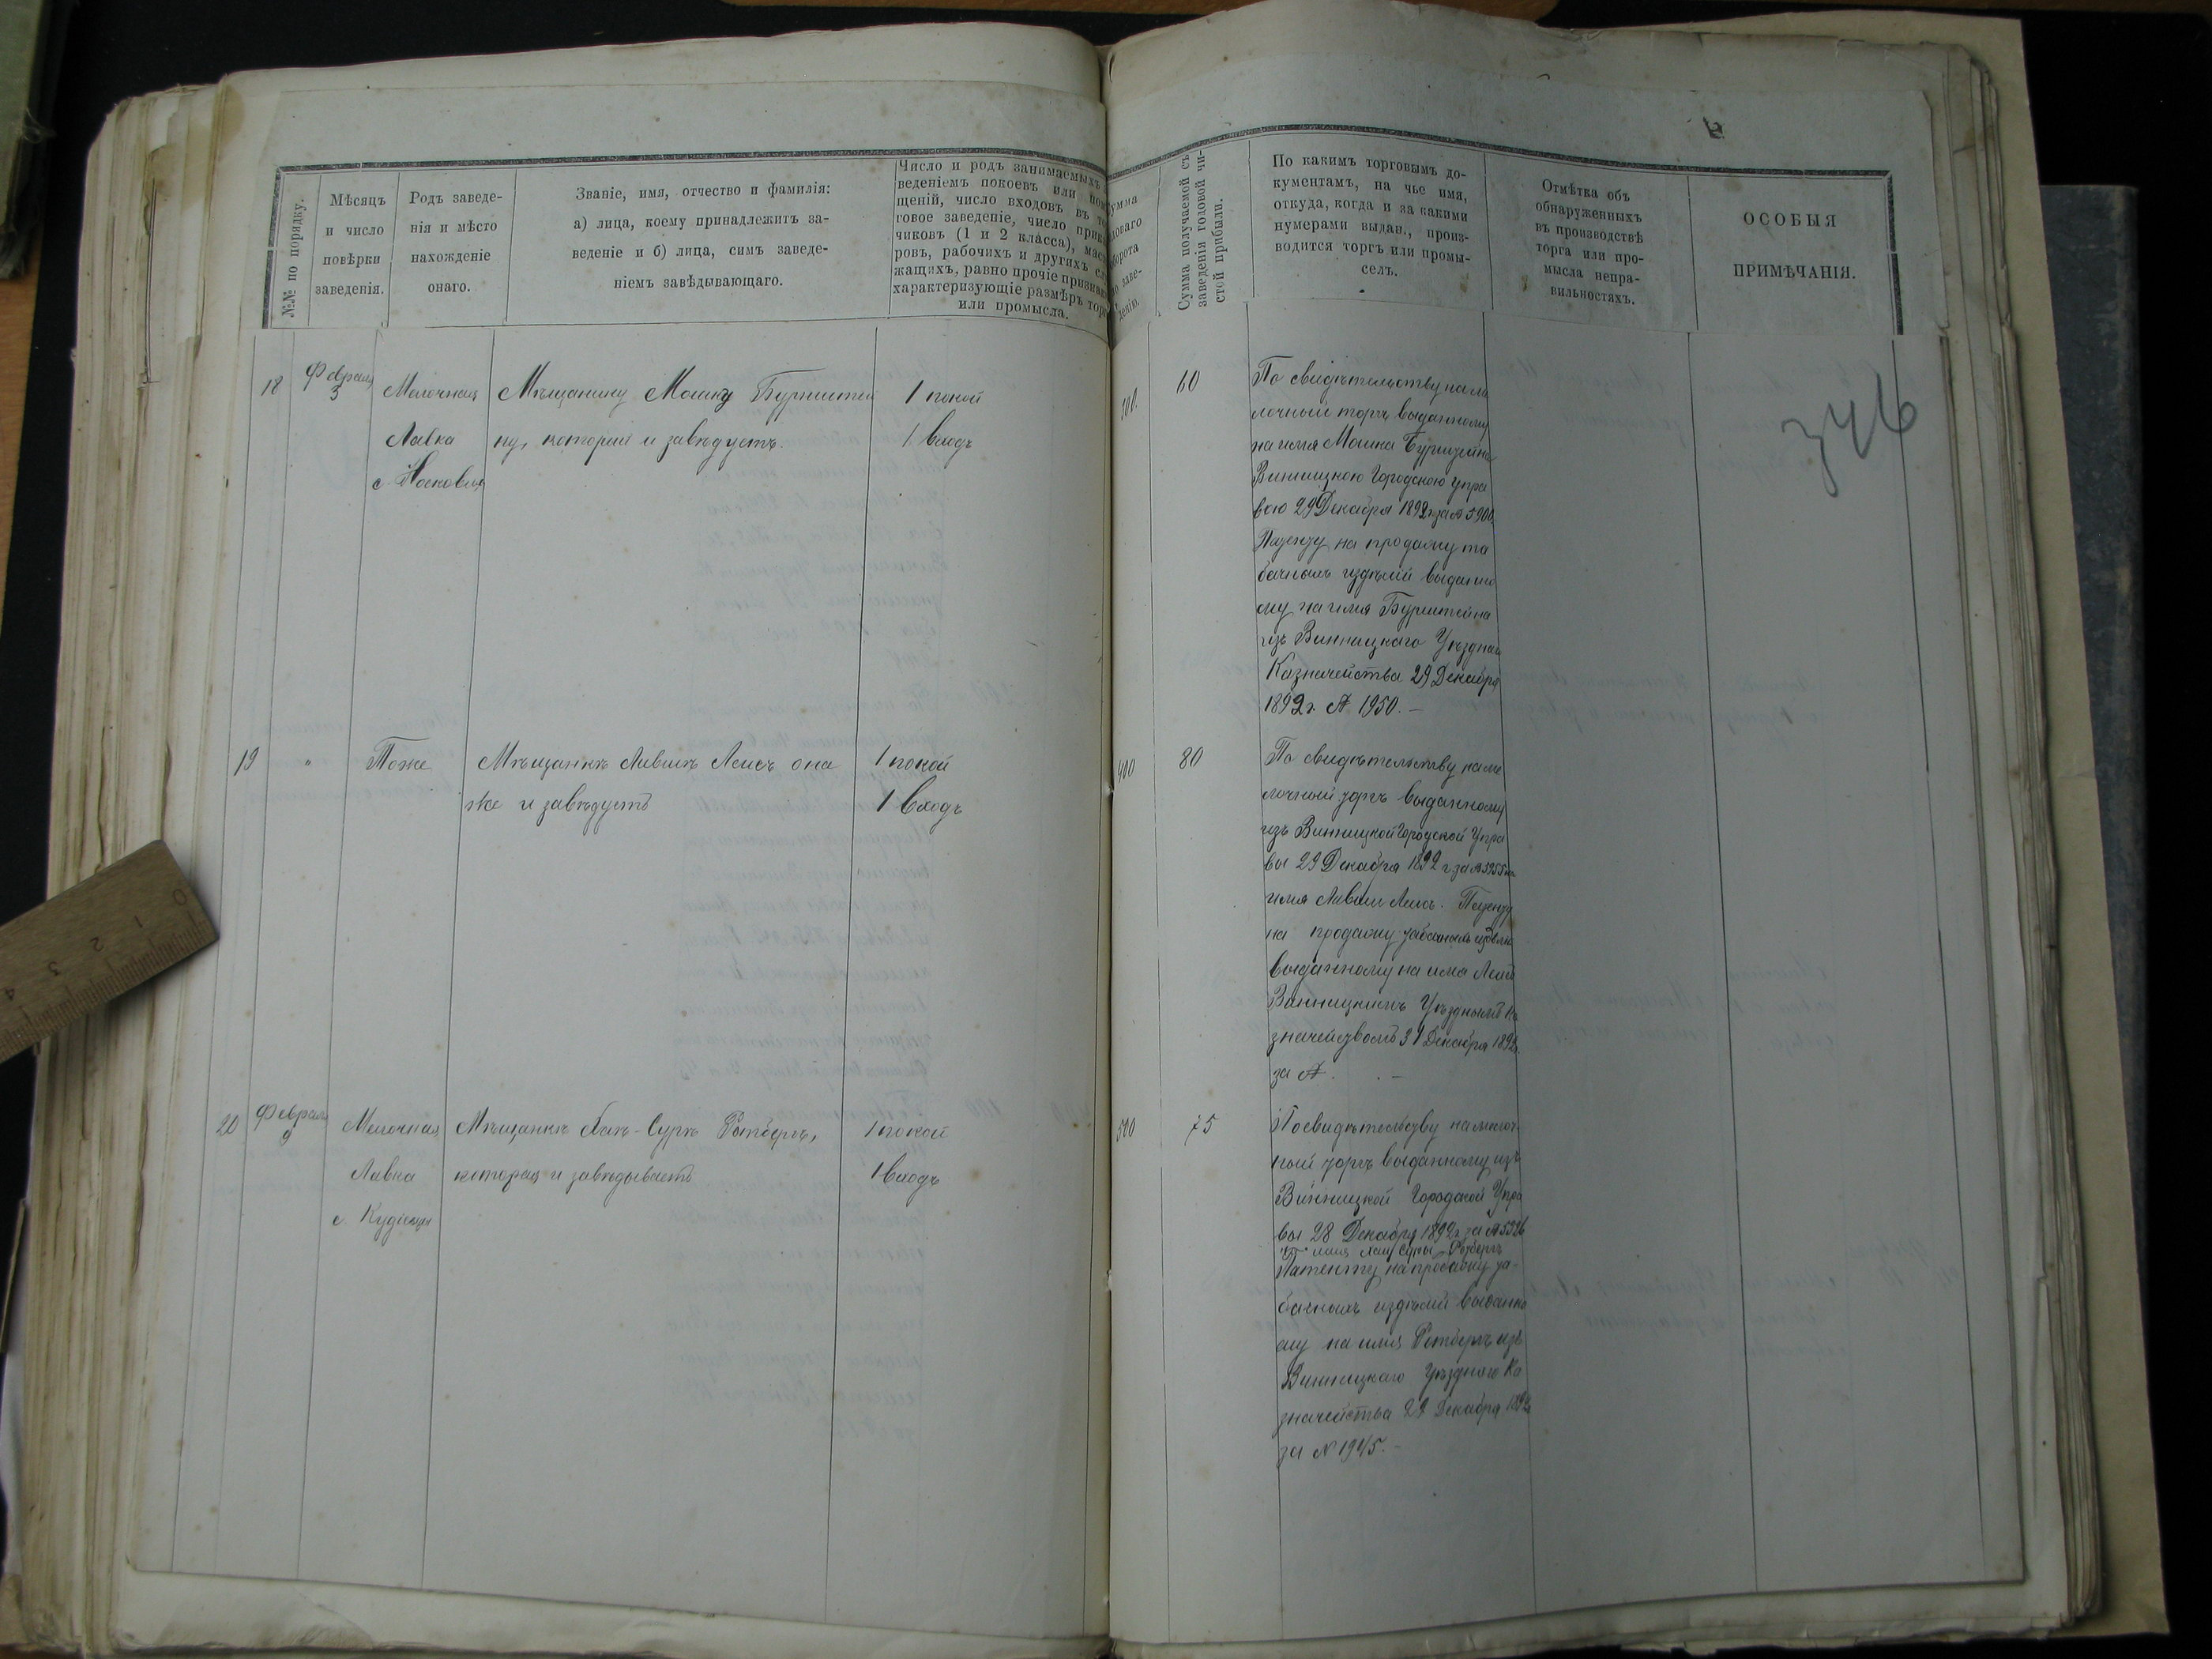 №№ по порядку.
Мѣсяцъ
и число
повѣрки
заведенія.
Родъ заведе-
нія и мѣсто
нахожденіе
онаго.
Званіе, имя, отчество и фамилія:
а) лица, коему принадлежитъ за-
веденіе и б) лица, симъ заведе-
ніемъ завѣдывающаго.
Число и родъ занимаемыхъ
веденіемъ покоевъ или пом
щеній, число входовъ въ то
говое заведеніе, число прик
чиковъ (1 и 2 класса), маст
ровъ, рабочихъ и другихъ сл
жащихъ, равно прочіе признаки
характеризующіе размѣръ торг
или промысла.
Сумма
доваго
оборота
по заве-
денію.
Сумма получаемой съ
заведенія годовой чи-
стой прибыли.
По какимъ торговымъ до-
кументамъ, на чье имя,
откуда, когда и за какими
нумерами выдан., произ-
водится торгъ или промы-
селъ.
Отмѣтка объ
обнаруженныхъ
въ производствѣ
торга или про-
мысла непра-
вильностяхъ.
ОСОБЫЯ
ПРИМѢЧАНІЯ.
346
18
Февраля
3
Мелочная
Лавка
с.
Мѣщанину Мошку Бурштей
ну, который и завѣдуетъ.
1 покой
1 входъ
300.
60
По свидѣтельству на ме
лочный торгъ выданному
на имя Мошка Бурштейна
Винницкою Городскою Упра
вою 29 Декабря 1892 г за №
Патенту на продажу та
бачныхъ издѣлій выданно
му на имя Бурштейна
изъ Винницкаго Уѣзднаго
Казначейства 29 Декабря
1892 г. № 1950. —
19
"
Тоже
Мѣщанкѣ она
же и завѣдуетъ
1 покой
1 входъ
400
80
По свидѣтельству на ме
лочный торгъ выданному
изъ Винницкой Городской Упра
вы 29 Декабря 1892 г за №
имя Патенту
на продажу табачныхъ издѣлій
выданному на имя
Винницкимъ Уѣзднымъ Ка
значействомъ 31 Декабря 1892 г.
за № . . —
20
Февраля
9
Мелочная
Лавка
с.
Мѣщанкѣ Хаѣ-Сурѣ Ротбергъ,
которая и завѣдываетъ
1 покой
1 входъ
500
75
По свидѣтельству на мелоч
ный торгъ выданному изъ
Винницкой Городской Упра
вы 28 Декабря 1892 г за № 5926
на имя Хаи Суры Ротбергъ
Патенту на продажу та-
бачныхъ издѣлій выданно
му на имя Ротбергъ изъ
Винницкаго Уѣзднаго Ка
значейства 29 Декабря 1892 г
за № 1945. —